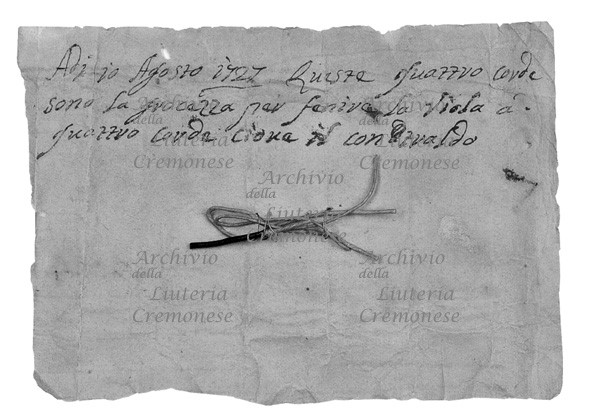 Adi 10 Agosto 1727 Queste quattro corde
sono la grosezza per fenire la Viola a
quattro corde ciove il contraldo
Archivio
della
Liuteria
Cremonese
Archivio
della
Liuteria
Cremonese
Archivio
della
Liuteria
Cremonese
Archivio
della
Liuteria
Cremonese
Archivio
della
Liuteria
Cremonese